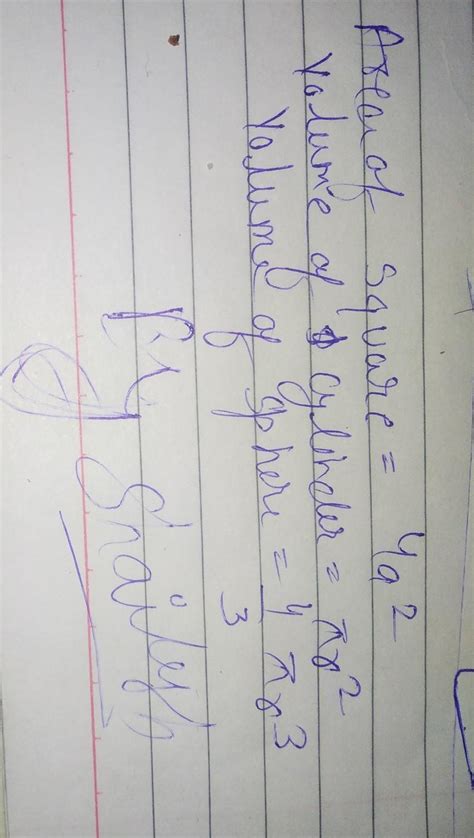 Area of square = 4a²
Volume of cylinder = πr²
Volume of sphere = 4/3 πr³
By Shailesh